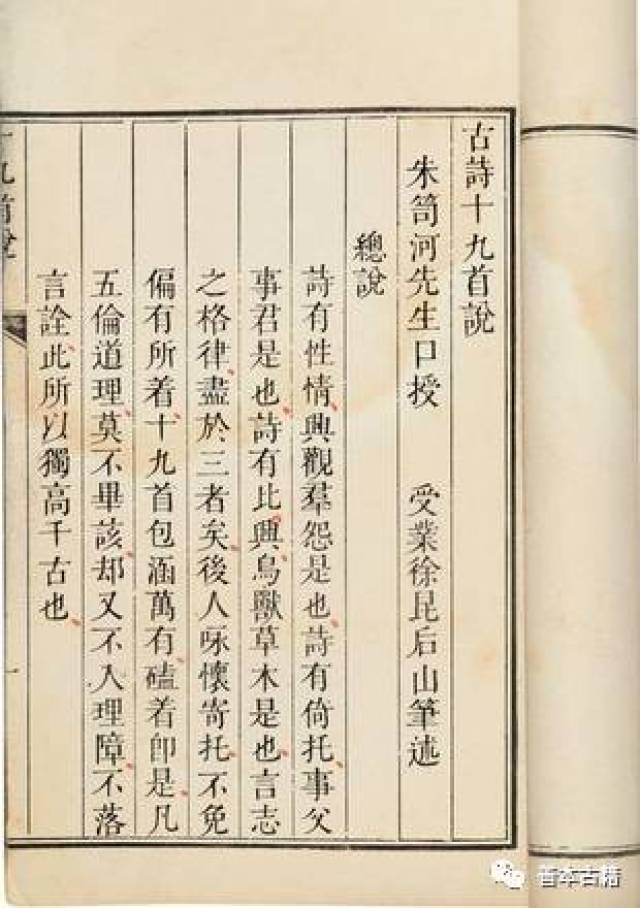 古詩十九首說
朱笥河先生口授 受業徐昆后山筆述
總說
詩有性情興觀羣怨是也詩有倚托事父
事君是也詩有比興鳥獸草木是也言志
之格律盡於三者矣後人咏懷寄托不免
偏有所着十九首包涵萬有磕着卽是凡
五倫道理莫不畢該却又不入理障不落
言詮此所以獨高千古也
十九首說
一
善本古籍